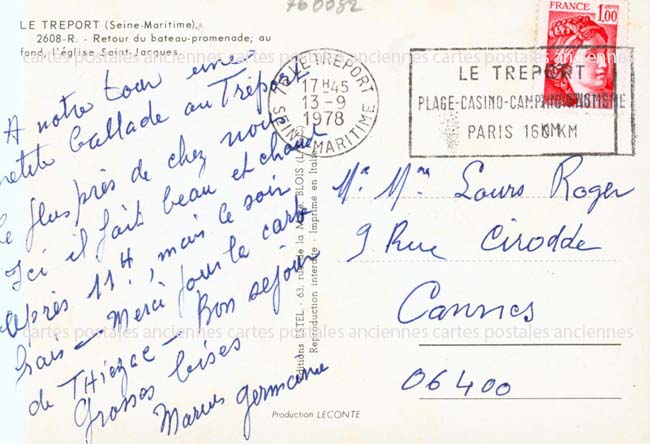 760082
LE TREPORT (Seine-Maritime).
2608-R. - Retour du bateau-promenade; au
fond, l'église Saint-Jacques.
A notre tour une
petite ballade au Tréport
le plus près de chez nous
Ici il fait beau et chaud
après 11H, mais le soir
frais - Merci pour la carte
de Thiezac - Bon séjour
Grosses bises
Marius Germaine
76 LE TREPORT
17H45
13-9
1978
SEINE MARITIME
FRANCE
1,00
LE TREPORT
PLAGE-CASINO-CAMPING
PARIS 160KM
Editions ESTEL - 63, rue de la BLOIS
Reproduction interdite - Imprimé en
Mr Mme Louis Roger
9 Rue Cirodde
Cannes
06400
Production LECONTE
cartes postales anciennes cartes postales anciennes cartes postales anciennes